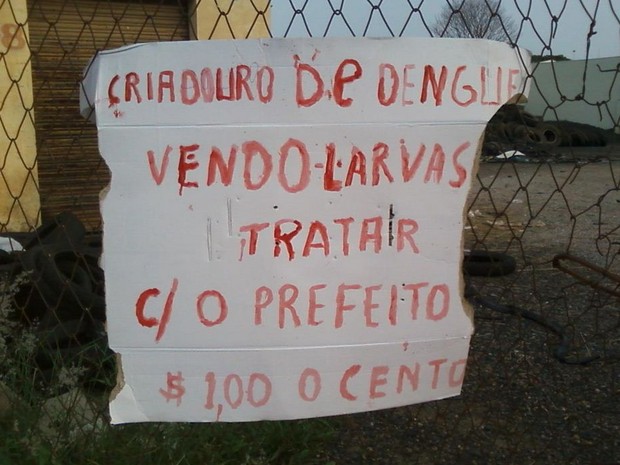 CRIADOURO De DENGUE
VENDO-LARVAS
TRATAR
C/ O PREFEITO
$ 1,00 O CENTO